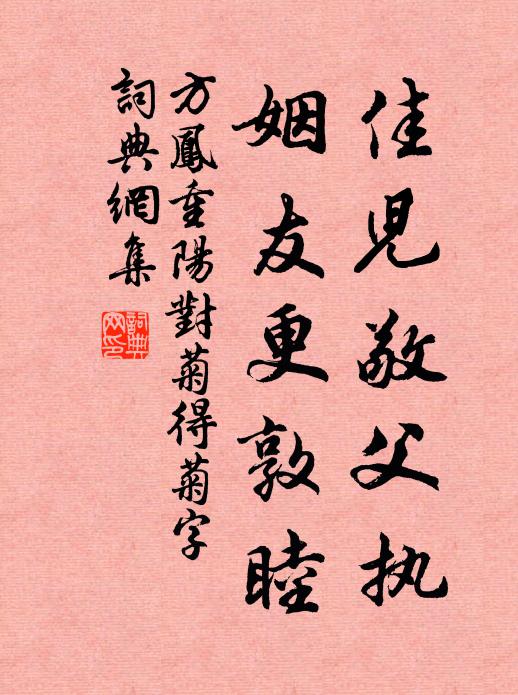 佳兒敬父执
姻友更敦睦
方鳳重陽對菊得菊字
詞典網集
詞典网印